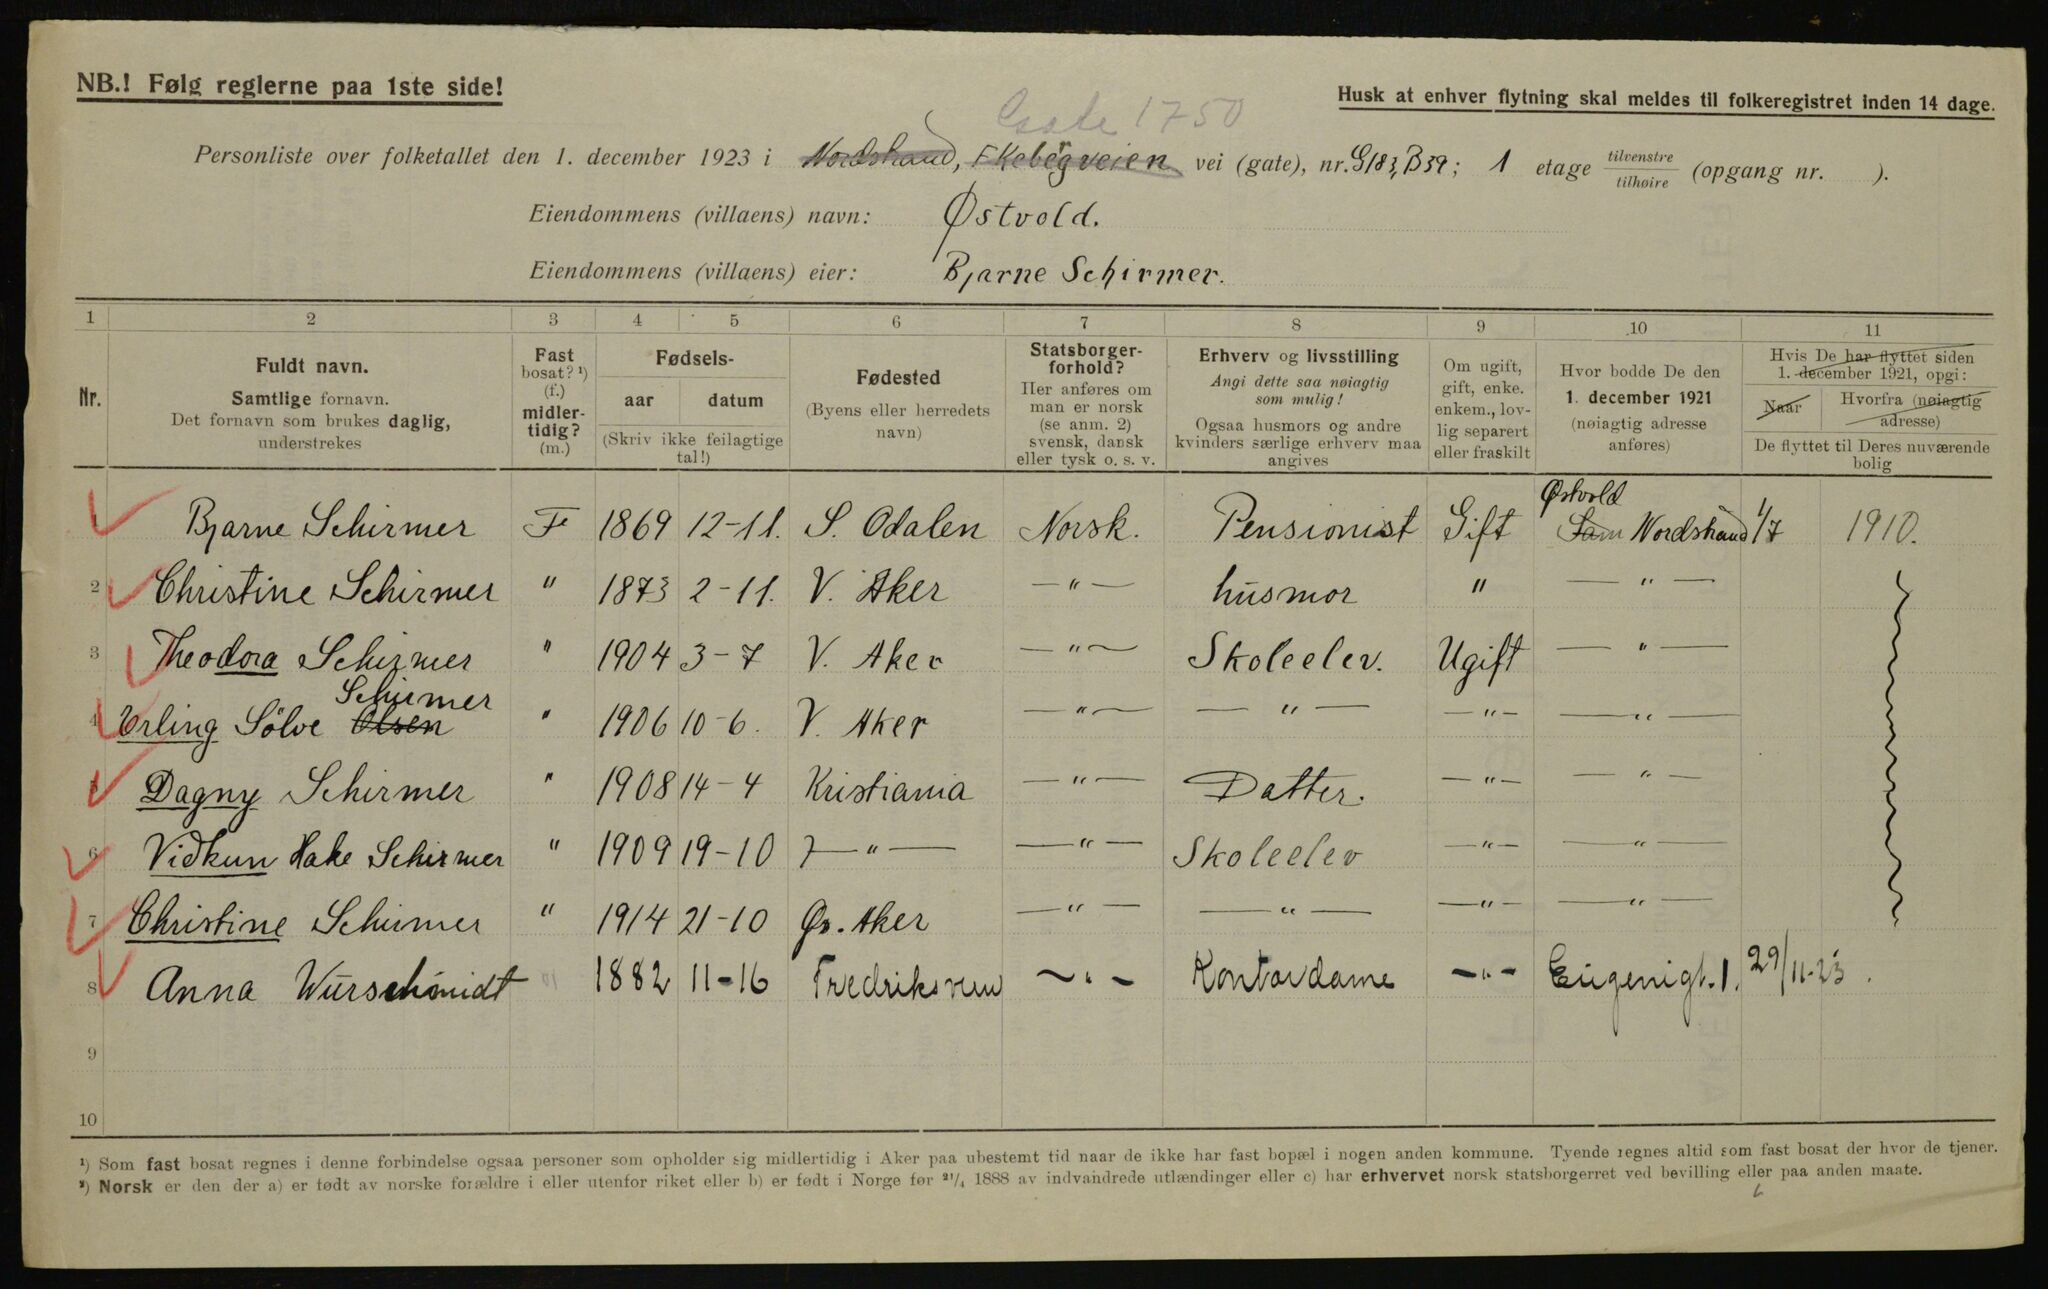 NB.! Følg reglerne paa 1ste side!
Husk at enhver flytning skal meldes til folkeregistret inden 14 dage.
Gate 1750
Personliste over folketallet den 1. december 1923 i Nordstrand, Ekebergveien vei (gate), nr. G183, B39; 1 etage tilvenstre tilhøire (opgang nr. ).
Eiendommens (villaens) navn: Østvold.
Eiendommens (villaens) eier: Bjarne Schirmer.
1 2 3 4 5 6 7 8 9 10 11
Nr.
Fuldt navn.
Samtlige fornavn.
Det fornavn som brukes daglig,
understrekes
Fast
bosat? ¹)
(f.)
midler-
tidig?
(m.)
Fødsels-
aar datum
(Skriv ikke feilagtige
tal!)
Fødested
(Byens eller herredets
navn)
Statsborger-
forhold?
Her anføres om
man er norsk
(se anm. 2)
svensk, dansk
eller tysk o. s. v.
Erhverv og livsstilling
Angi dette saa nøiagtig
som mulig!
Ogsaa husmors og andre
kvinders særlige erhverv maa
angives
Om ugift,
gift, enke.
enkem., lov-
lig separert
eller fraskilt
Hvor bodde De den
1. december 1921
(nøiagtig adresse
anføres)
Hvis De har flyttet siden
1. december 1921, opgi:
Naar Hvorfra (nøiagtig
adresse)
De flyttet til Deres nuværende
bolig
Østvold
1 Bjarne Schirmer F 1869 12-11. S. Odalen Norsk. Pensionist Gift Sam Nordstrand 1/7 1910.
2 Christine Schirmer " 1873 2-11. V. Aker —"— husmor " —"—
3 Theodora Schirmer " 1904 3-7 V. Aker —"— Skoleelev. Ugift —"—
Schirmer
4 Erling Sölve Olsen " 1906 10-6. V. Aker —"— —"— —"— —"—
5 Dagny Schirmer " 1908 14-4 Kristiania —"— Datter. —"— —"—
6 Vidkun Hake Schirmer " 1909 19-10 —"— —"— Skoleelev —"— —"—
7 Christine Schirmer " 1914 21-10 Øs. Aker —"— —"— —"— —"—
8 Anna Würschmidt 1882 11-16 Fredriksværn —"— Kontordame —"— Eugenigt. 1. 29/11-23.
9
10
¹) Som fast bosat regnes i denne forbindelse ogsaa personer som opholder sig midlertidig i Aker paa ubestemt tid naar de ikke har fast bopæl i nogen anden kommune. Tyende regnes altid som fast bosat der hvor de tjener.
²) Norsk er den der a) er født av norske forældre i eller utenfor riket eller b) er født i Norge før ²¹/₄ 1888 av indvandrede utlændinger eller c) har erhvervet norsk statsborgerret ved bevilling eller paa anden maate.